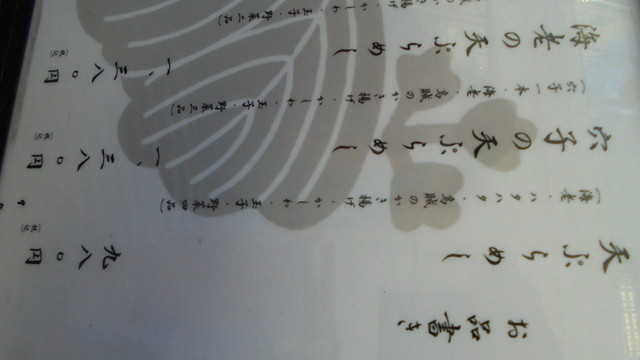 お品書き
天ぷらめし
九八〇円
(税込)
(海老・ハタハタ・烏賊のかき揚げ・かしわ・玉子・野菜四品)
穴子の天ぷらめし
一、三八〇円
(税込)
(穴子一本・海老・烏賊のかき揚げ・かしわ・玉子・野菜三品)
海老の天ぷらめし
一、三八〇円
(税込)
かしわ・玉子・野菜二品)